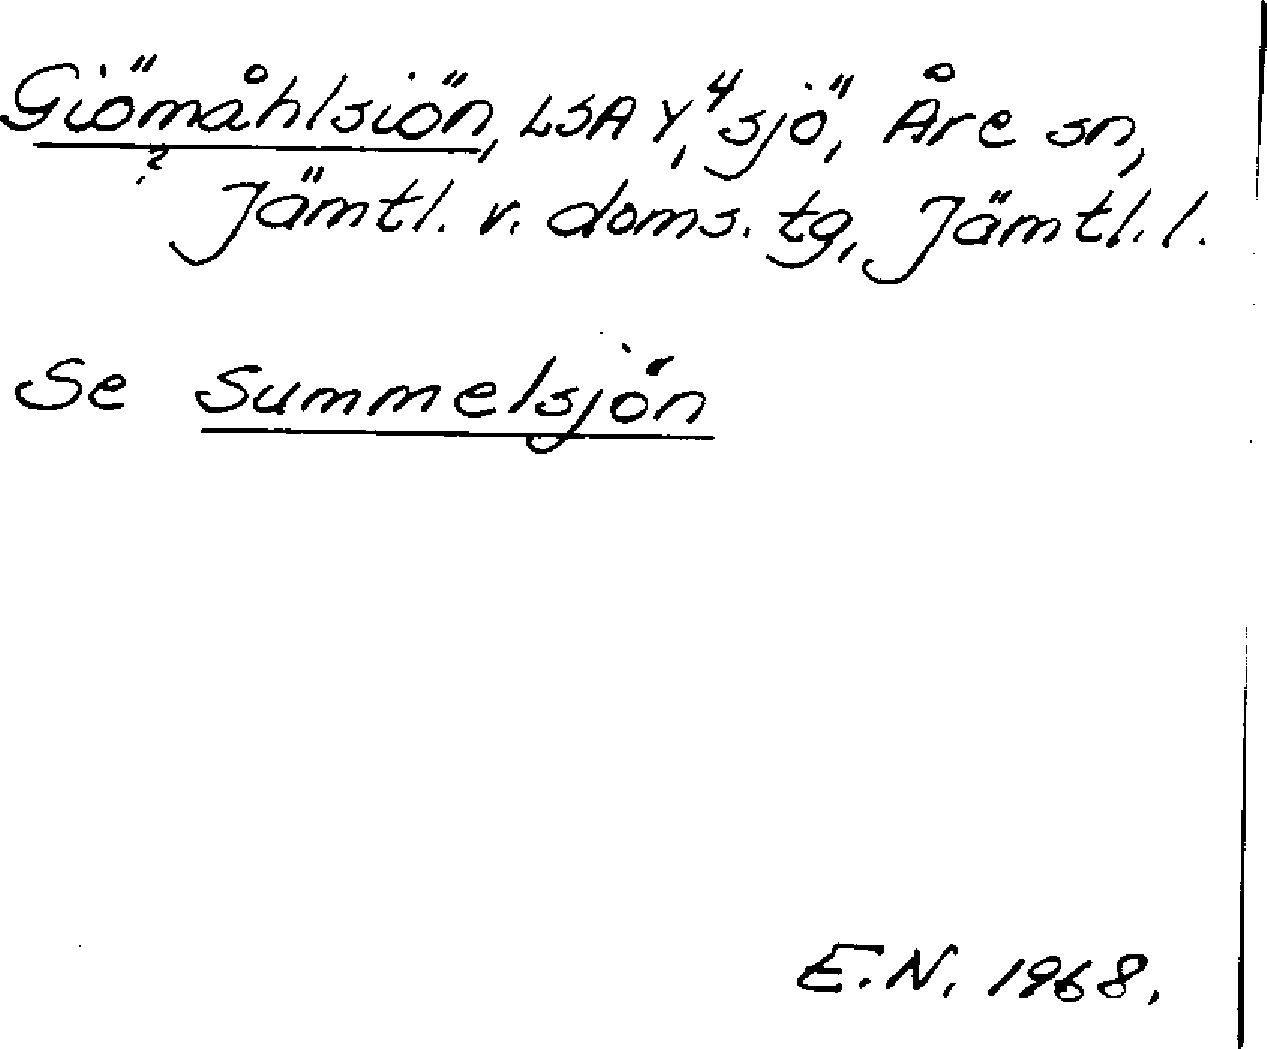 Giömåhlsiön, LSA Y, "sjö", Åre sn,
? Jämtl. v. doms. tg, Jämtl. l.
Se Summelsjön
E.N. 1968.